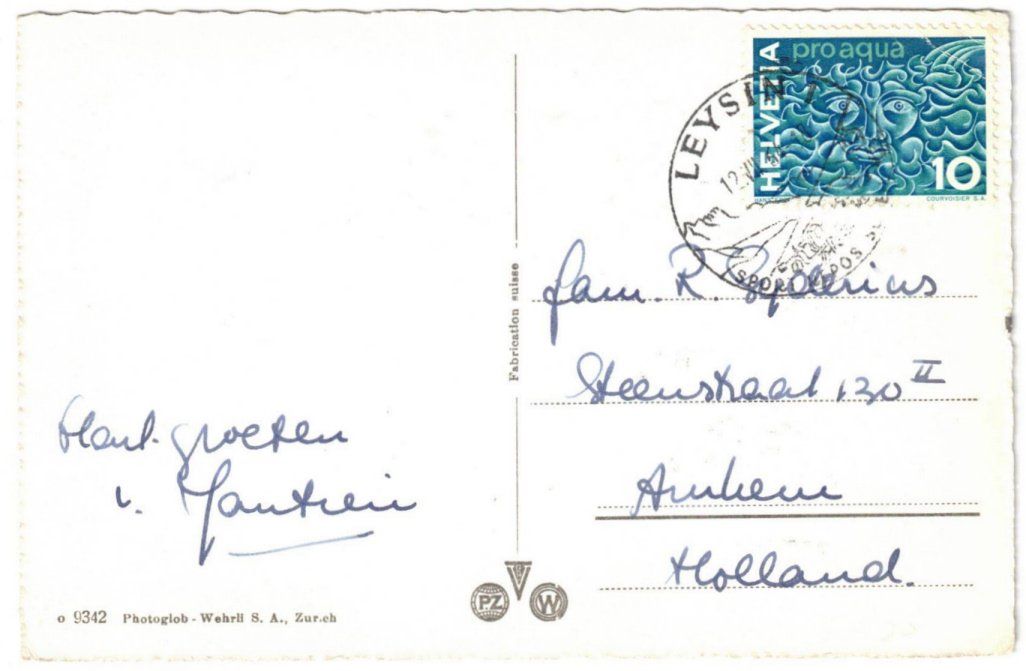 pro aqua
HELVETIA
10
COURVOISIER S.A.
LEYSIN 1
12.VII
SPORT REPOS
Fam. R.
Steenstraat 130 II
Arnhem
Holland.
Fabrication suisse
Hart. groeten
v.
o 9342 Photoglob - Wehrli S. A., Zurich
PZ
W